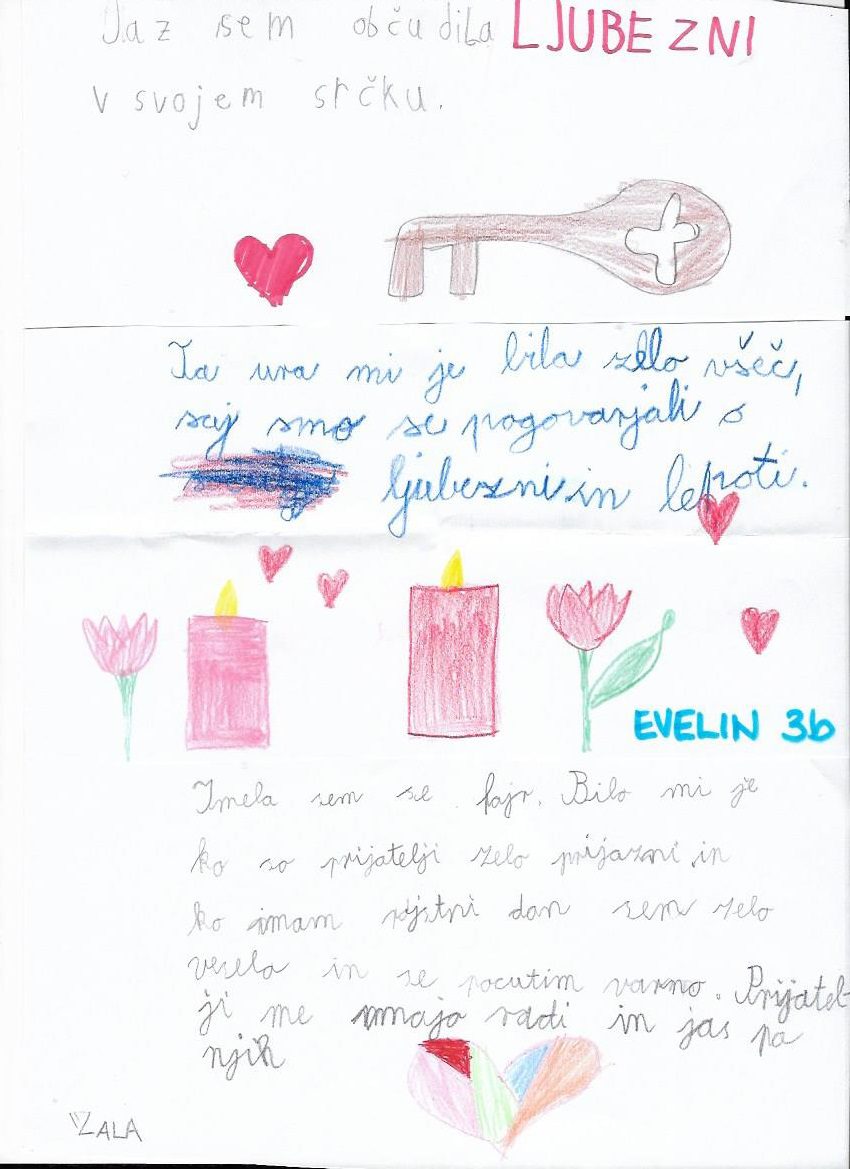 Jaz sem obču dila LJUBEZNI
v svojem srčku.
Ta ura mi je bila zelo všeč,
saj smo se pogovarjali o
ljubezni in lepoti.
EVELIN 3b
Imela sem se fajn. Bilo mi je
ko so prijatelji zelo prijazni in
ko imam rojstni dan sem zelo
vesela in se pocutim varno. Prijatel-
ji me majo radi in jas pa
njih
ZALA